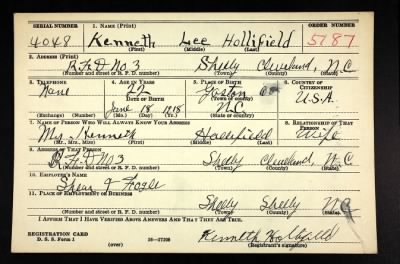 SERIAL NUMBER 1. NAME (Print) ORDER NUMBER
4048 Kenneth Lee Hollifield 5187
(First) (Middle) (Last)
2. ADDRESS (Print)
R.F.D No 3 Shelby Cleveland, N.C
(Number and street or R. F. D. number) (Town) (County) (State)
3. TELEPHONE 4. AGE IN YEARS 5. PLACE OF BIRTH 6. COUNTRY OF CITIZENSHIP
None 22 Gaston Co
DATE OF BIRTH (Town or county)
June 18 1918 N.C. U.S.A.
(Exchange) (Number) (Mo.) (Day) (Yr.) (State or country)
7. NAME OF PERSON WHO WILL ALWAYS KNOW YOUR ADDRESS 8. RELATIONSHIP OF THAT PERSON
Mrs. Kenneth Hollifield Wife
(Mr., Mrs., Miss) (First) (Middle) (Last)
9. ADDRESS OF THAT PERSON
R F D No 3 Shelby Cleveland, N.C
(Number and street or R. F. D. number) (Town) (County) (State)
10. EMPLOYER'S NAME
11. PLACE OF EMPLOYMENT OR BUSINESS
Shelby Shelby N C
(Number and street or R. F. D. number) (Town) (County) (State)
I AFFIRM THAT I HAVE VERIFIED ABOVE ANSWERS AND THAT THEY ARE TRUE.
REGISTRATION CARD
D. S. S. Form 1 (over) 16—17105 Kenneth Hollifield
(Registrant's signature)